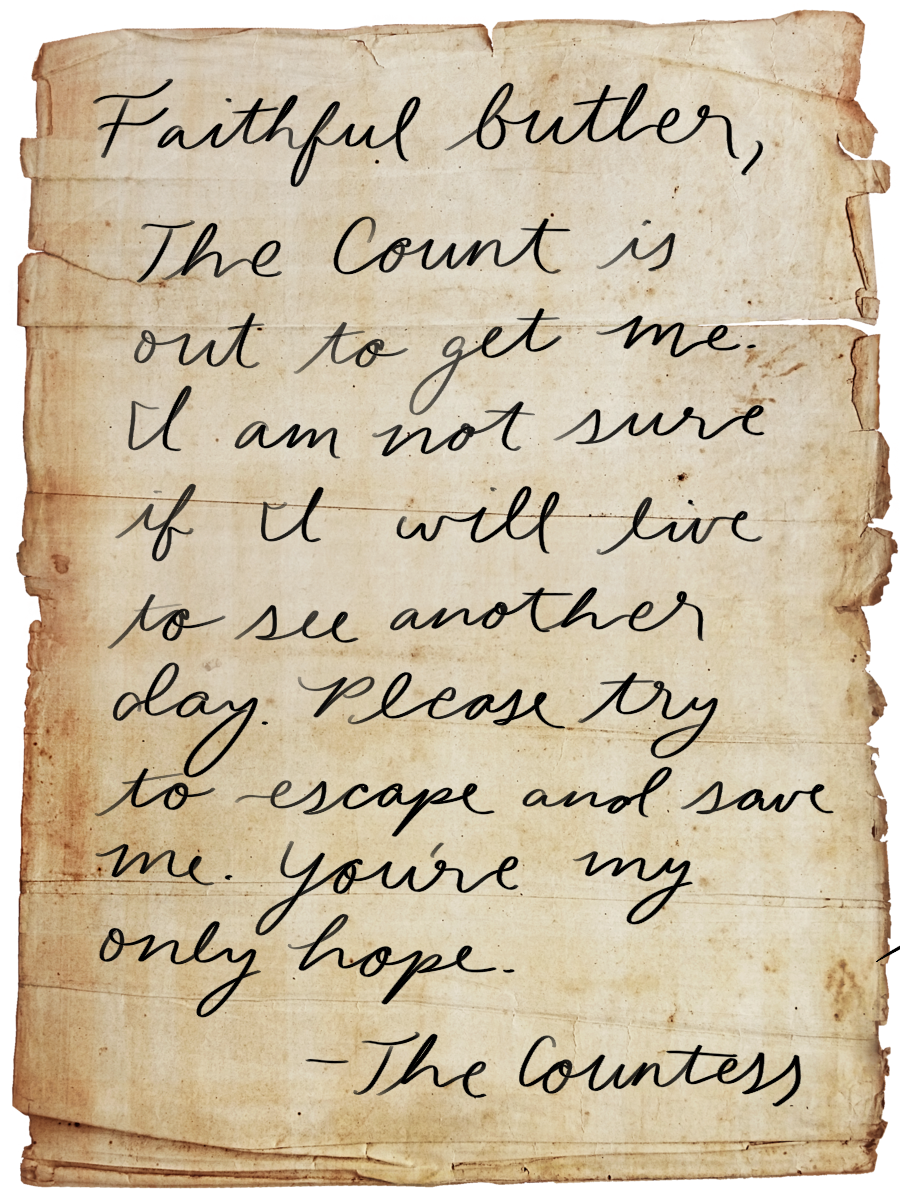 Faithful butler,
The Count is
out to get me.
I am not sure
if I will live
to see another
day. Please try
to escape and save
me. You're my
only hope.
- The Countess